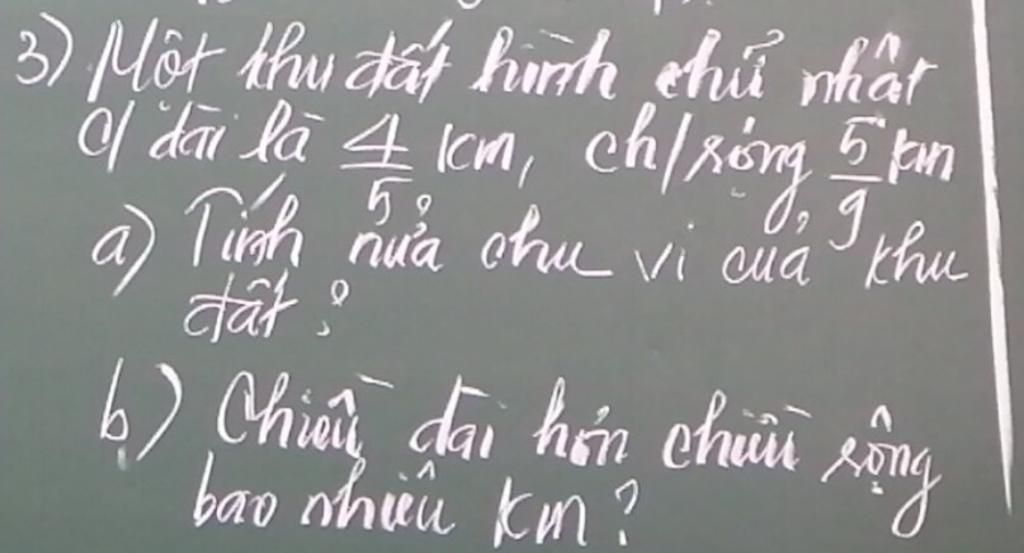 3) Một khu đất hình chữ nhật
c/ dài là 4/5 km, ch/rộng 5/9 km
a) Tính nửa chu vi của khu
đất?
b) Chiều dài hơn chiều rộng
bao nhiêu km?